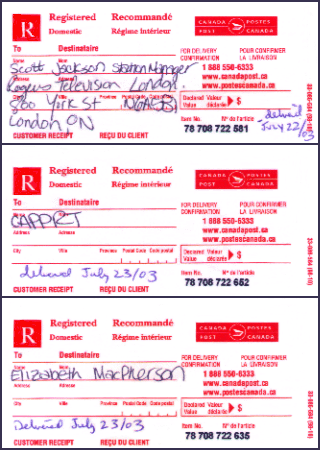 R Registered Recommandé
Domestic Régime intérieur
CANADA POSTES
POST CANADA
To Destinataire
FOR DELIVERY POUR CONFIRMER
CONFIRMATION LA LIVRAISON
1 888 550-6333
www.canadapost.ca
www.postescanada.ca
Scott Jackson Station Manager
Rogers Television London
800 York St N6A5B1
London, ON
Declared Valeur
Value déclarée $
Item No. N° de l'article
78 708 722 581
delivered
July 22/03
CUSTOMER RECEIPT REÇU DU CLIENT
R Registered Recommandé
Domestic Régime intérieur
CANADA POSTES
POST CANADA
To Destinataire
FOR DELIVERY POUR CONFIRMER
CONFIRMATION LA LIVRAISON
1 888 550-6333
www.canadapost.ca
www.postescanada.ca
CAPPRT
Address Adresse
City Ville Province Postal Code Code postal
Declared Valeur
Value déclarée $
delivered July 23/03
Item No. N° de l'article
78 708 722 652
CUSTOMER RECEIPT REÇU DU CLIENT
R Registered Recommandé
Domestic Régime intérieur
CANADA POSTES
POST CANADA
To Destinataire
FOR DELIVERY POUR CONFIRMER
CONFIRMATION LA LIVRAISON
1 888 550-6333
www.canadapost.ca
www.postescanada.ca
Elizabeth MacPherson
Address Adresse
City Ville Province Postal Code Code postal
Declared Valeur
Value déclarée $
Delivered July 23/03
Item No. N° de l'article
78 708 722 635
CUSTOMER RECEIPT REÇU DU CLIENT